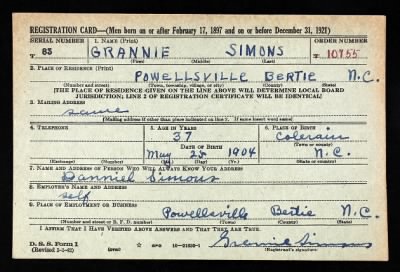 REGISTRATION CARD—(Men born on or after February 17, 1897 and on or before December 31, 1921)
SERIAL NUMBER 1. NAME (Print) ORDER NUMBER
T 83 GRANNIE SIMONS 10755
(First) (Middle) (Last)
2. PLACE OF RESIDENCE (Print)
POWELLSVILLE BERTIE N.C.
(Number and street) (Town, township, village, or city) (County) (State)
[THE PLACE OF RESIDENCE GIVEN ON THE LINE ABOVE WILL DETERMINE LOCAL BOARD
JURISDICTION; LINE 2 OF REGISTRATION CERTIFICATE WILL BE IDENTICAL]
3. MAILING ADDRESS
Same
(Mailing address if other than place indicated on line 2. If same insert word same)
4. TELEPHONE 5. AGE IN YEARS 6. PLACE OF BIRTH
37 Colerain
DATE OF BIRTH (Town or county)
May 25 1904 N.C.
(Exchange) (Number) (Mo.) (Day) (Yr.) (State or country)
7. NAME AND ADDRESS OF PERSON WHO WILL ALWAYS KNOW YOUR ADDRESS
Danniel Simons
8. EMPLOYER'S NAME AND ADDRESS
self
9. PLACE OF EMPLOYMENT OR BUSINESS
Powellsville Bertie N.C.
(Number and street or R. F. D. number) (Town) (County) (State)
I AFFIRM THAT I HAVE VERIFIED ABOVE ANSWERS AND THAT THEY ARE TRUE.
D. S. S. Form 1
(Revised (over) GPO Grannie Simons
(Registrant's signature)